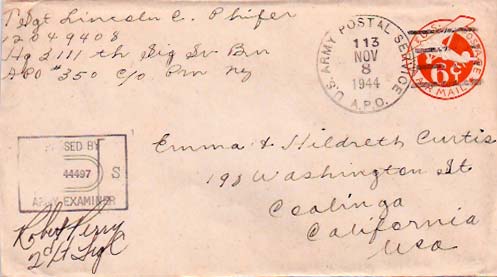 T/Sgt Lincoln C. Phifer
12049408
Hq 3111 th Sig Sv Bn
APO #350 c/o Pm Ny
U.S. ARMY POSTAL SERVICE
113
NOV
8
1944
A.P.O.
POSTAGE
6¢
AIR MAIL
PASSED BY
44497 S
ARMY EXAMINER
Robert Perry
2d Lt Sig C
Emma & Hildreth Curtis
198 Washington St
Coalinga
California
USA